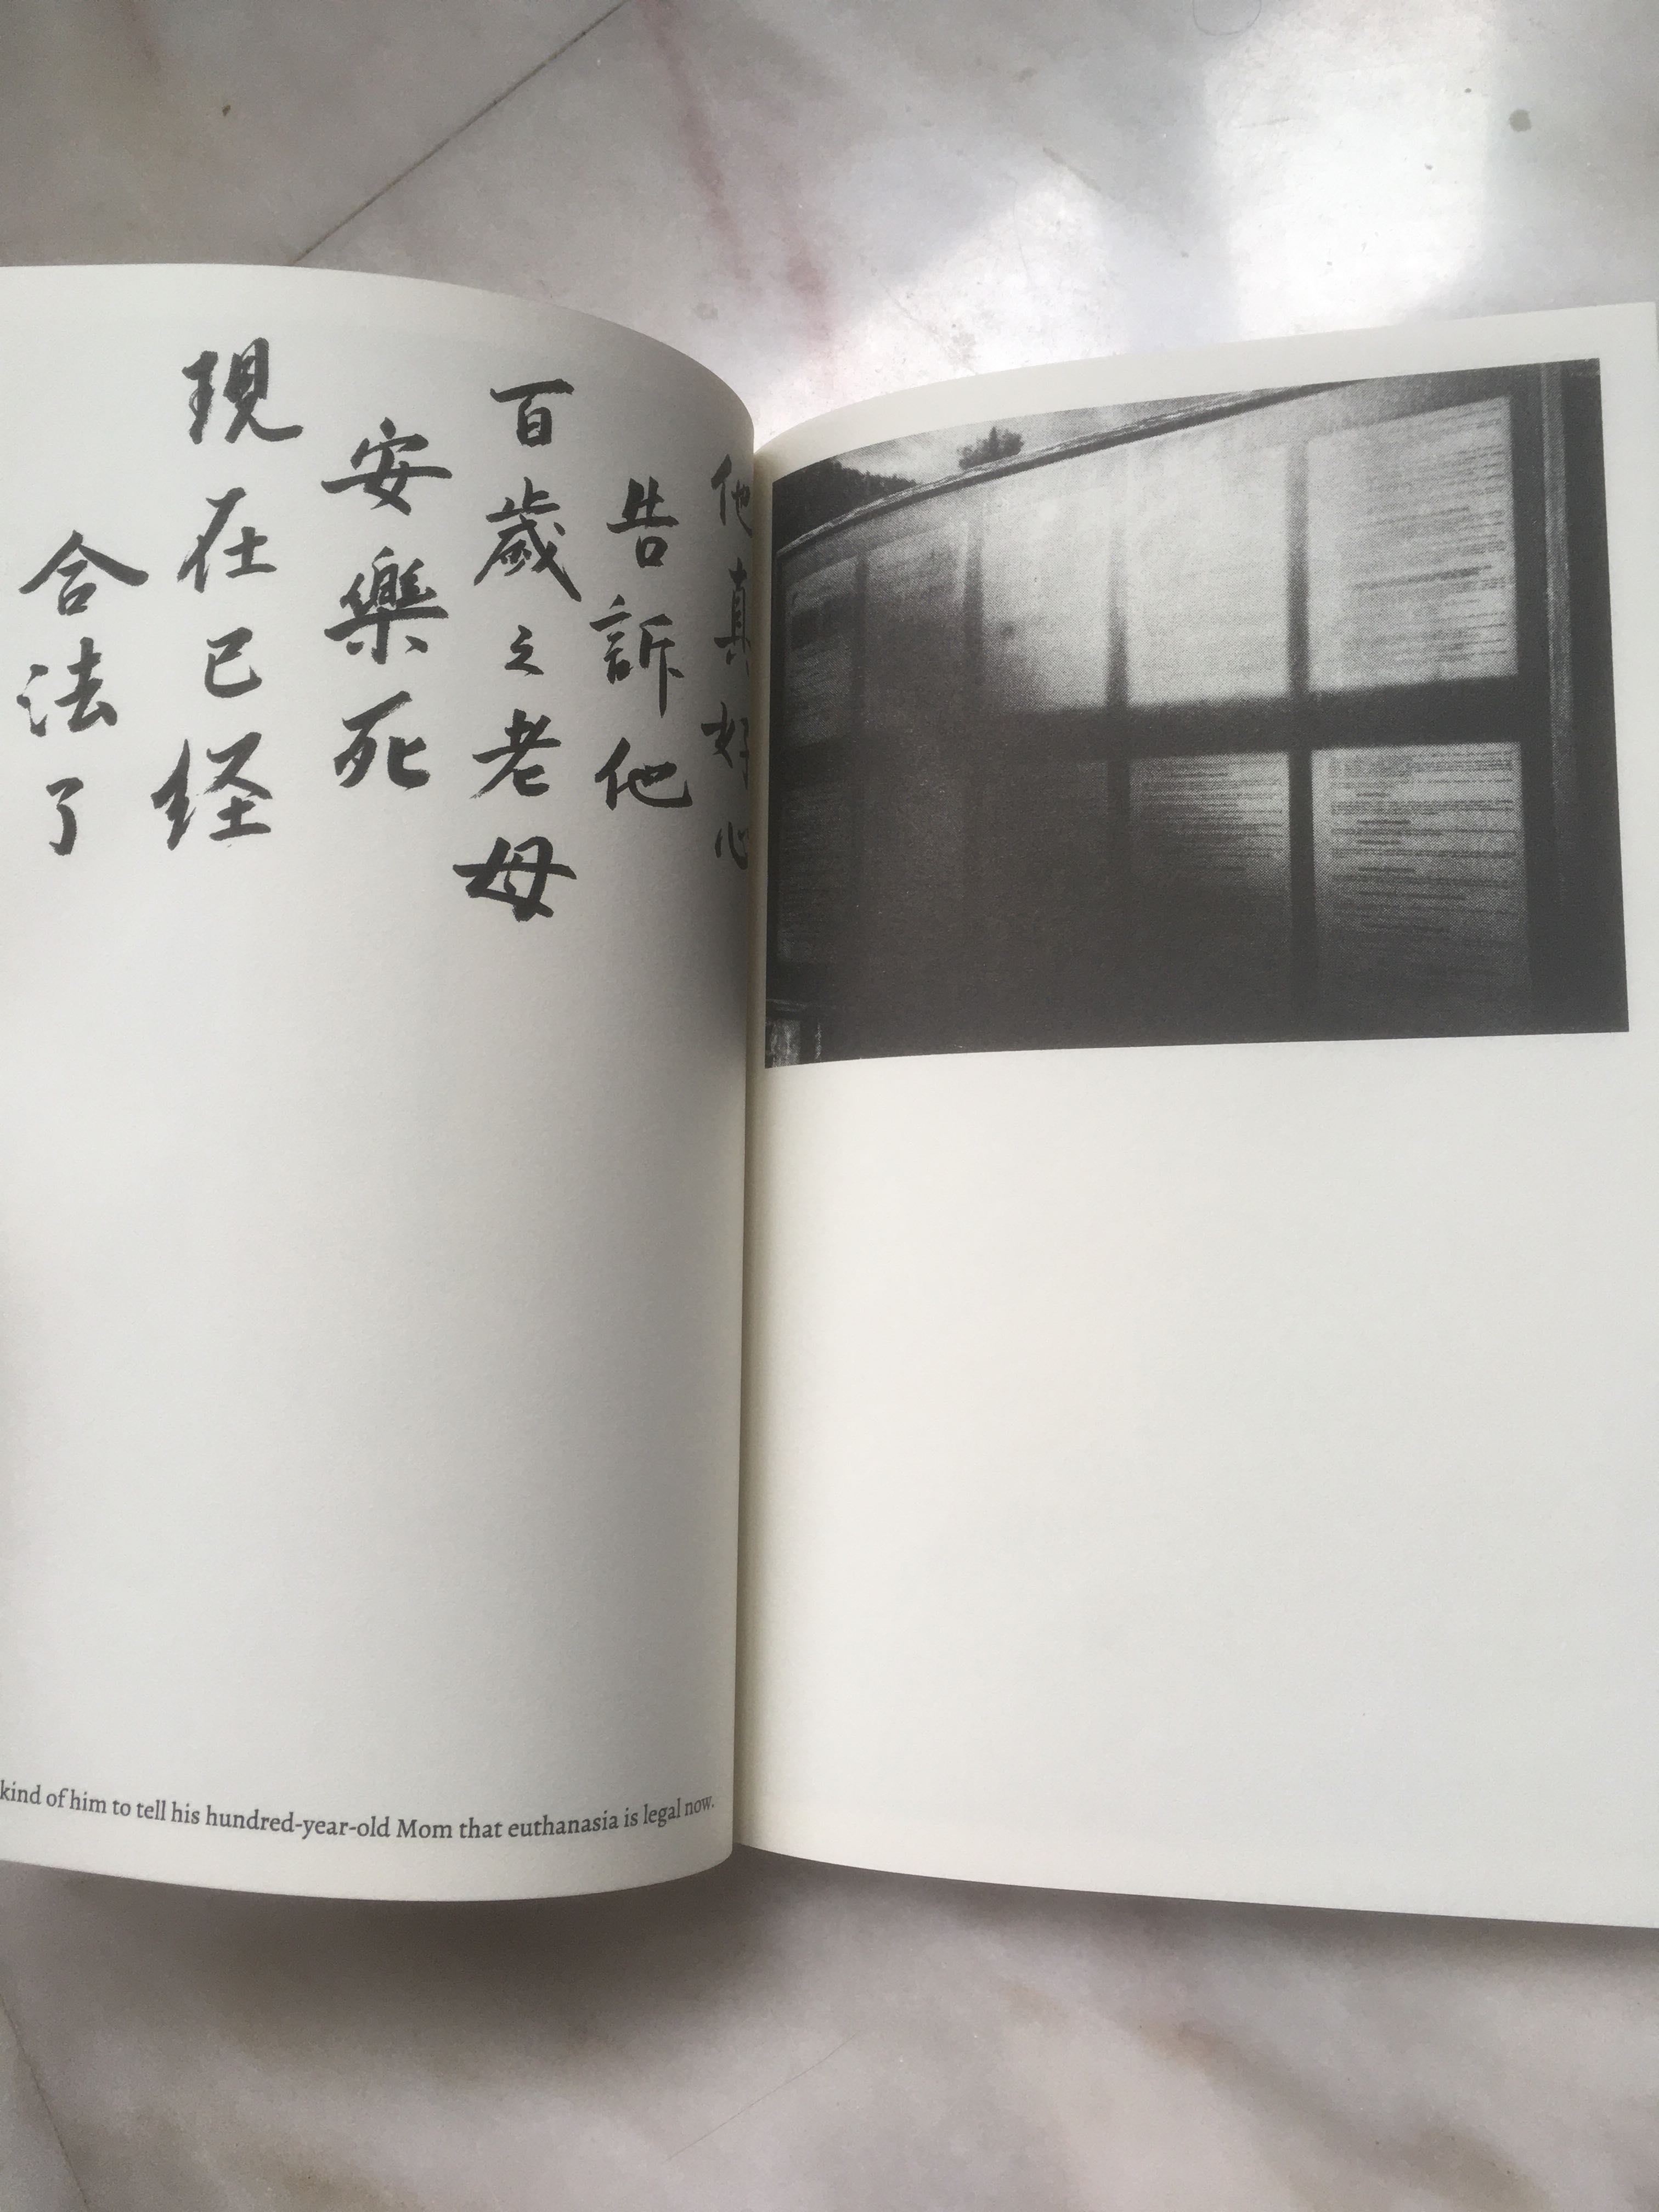 他真好心
告訴他
百歲之老母
安樂死
現在已经
合法了
kind of him to tell his hundred-year-old Mom that euthanasia is legal now.